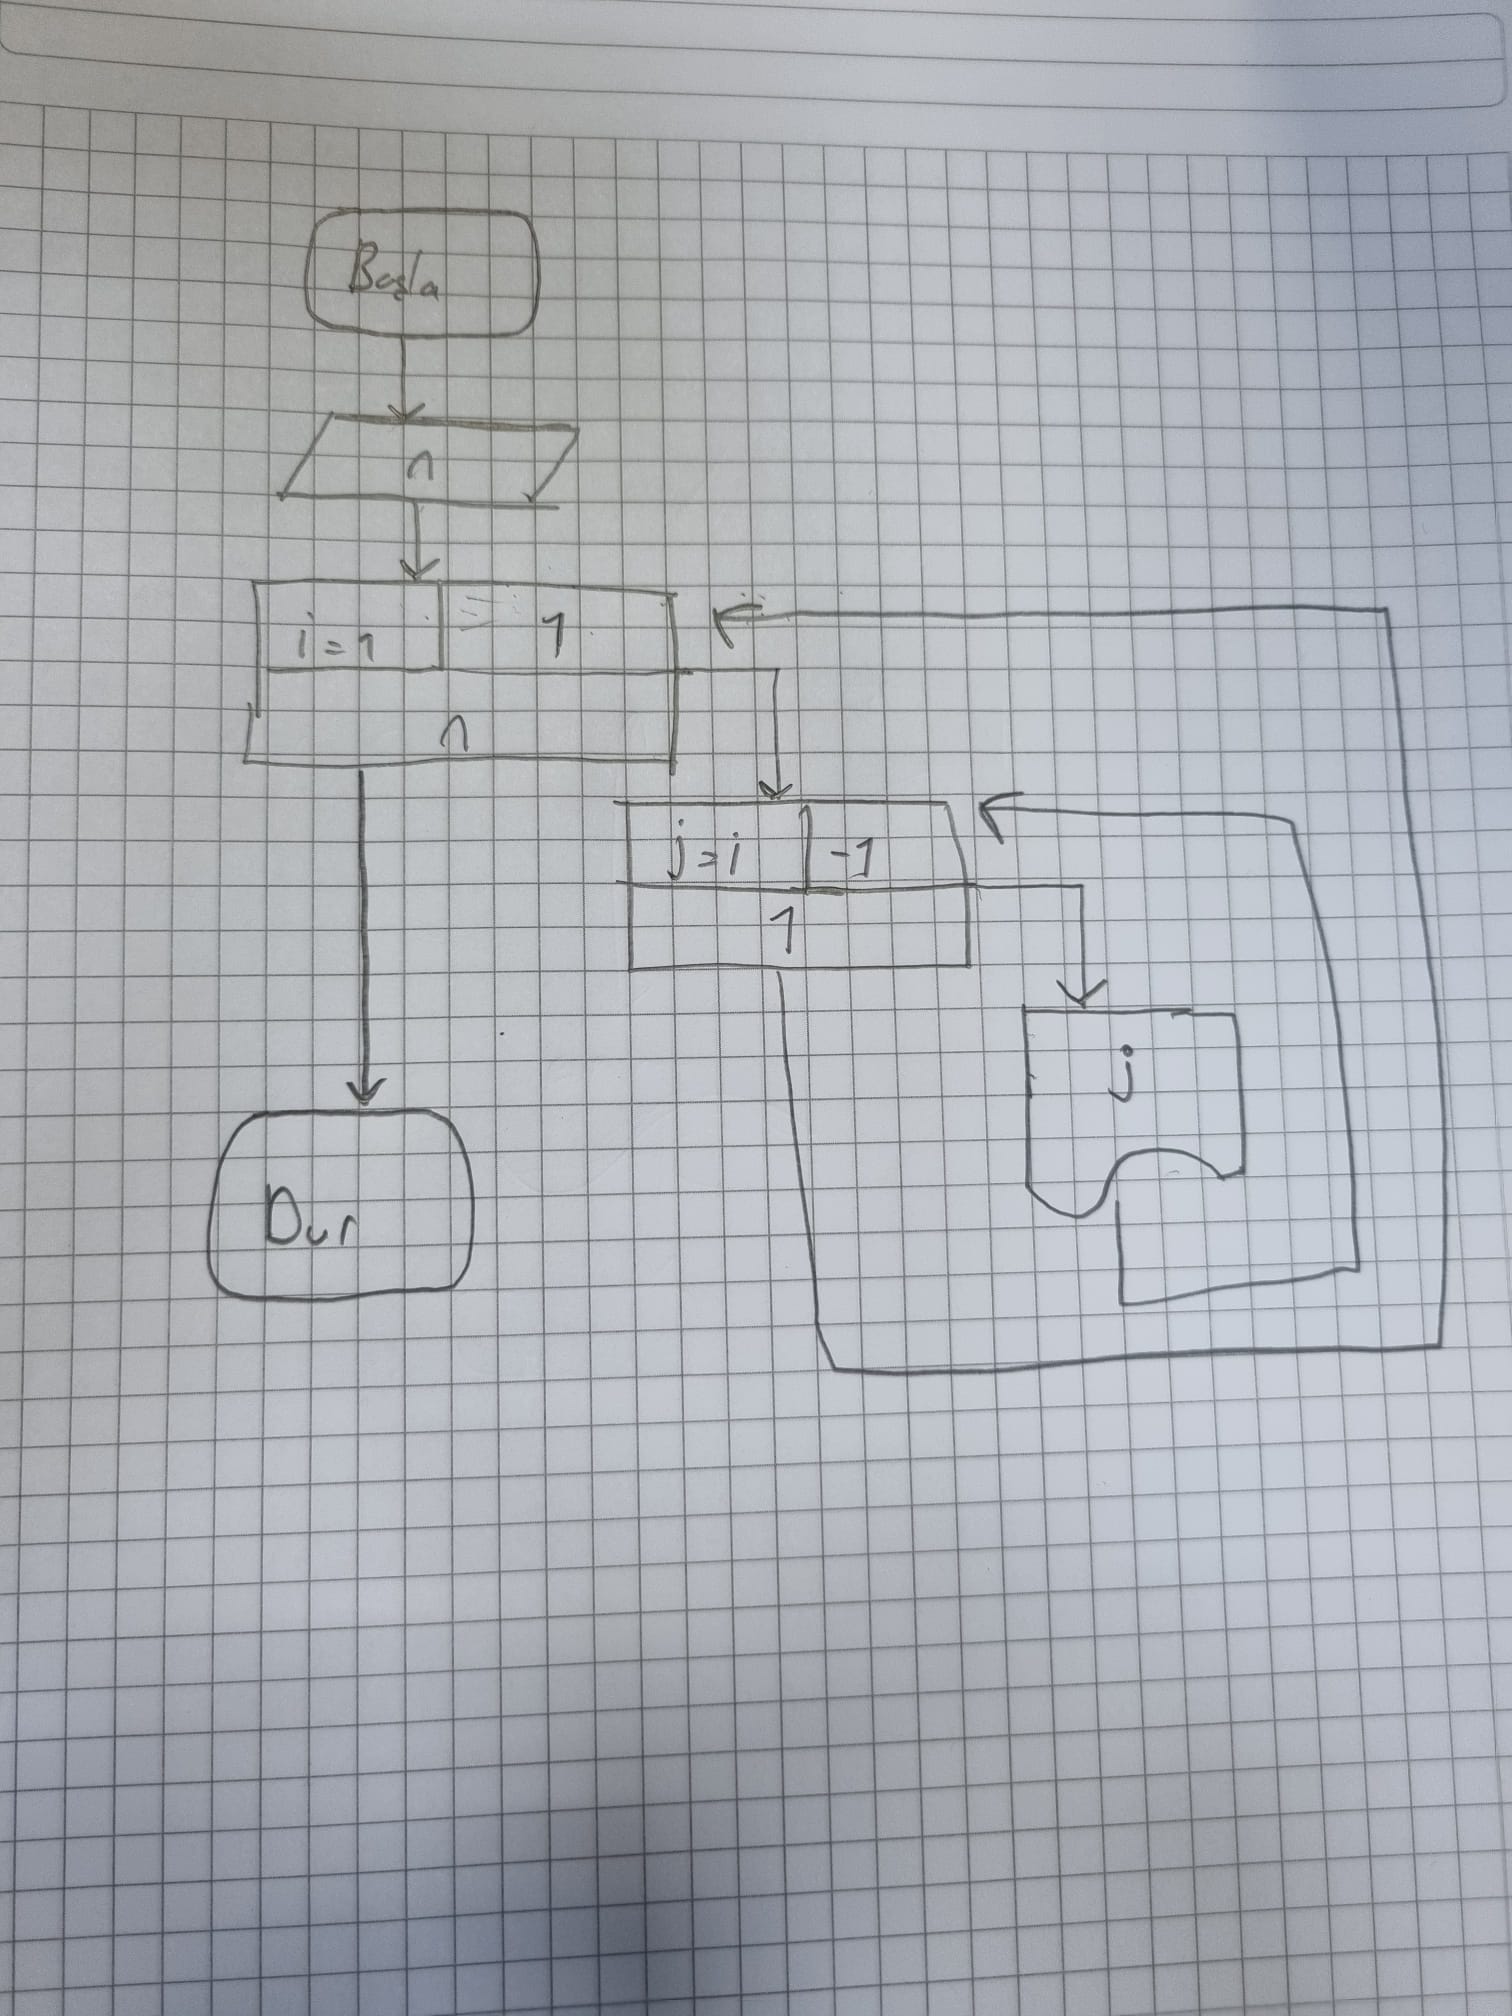 Başla
n
i=1 1
n
j=i -1
1
j
Dur